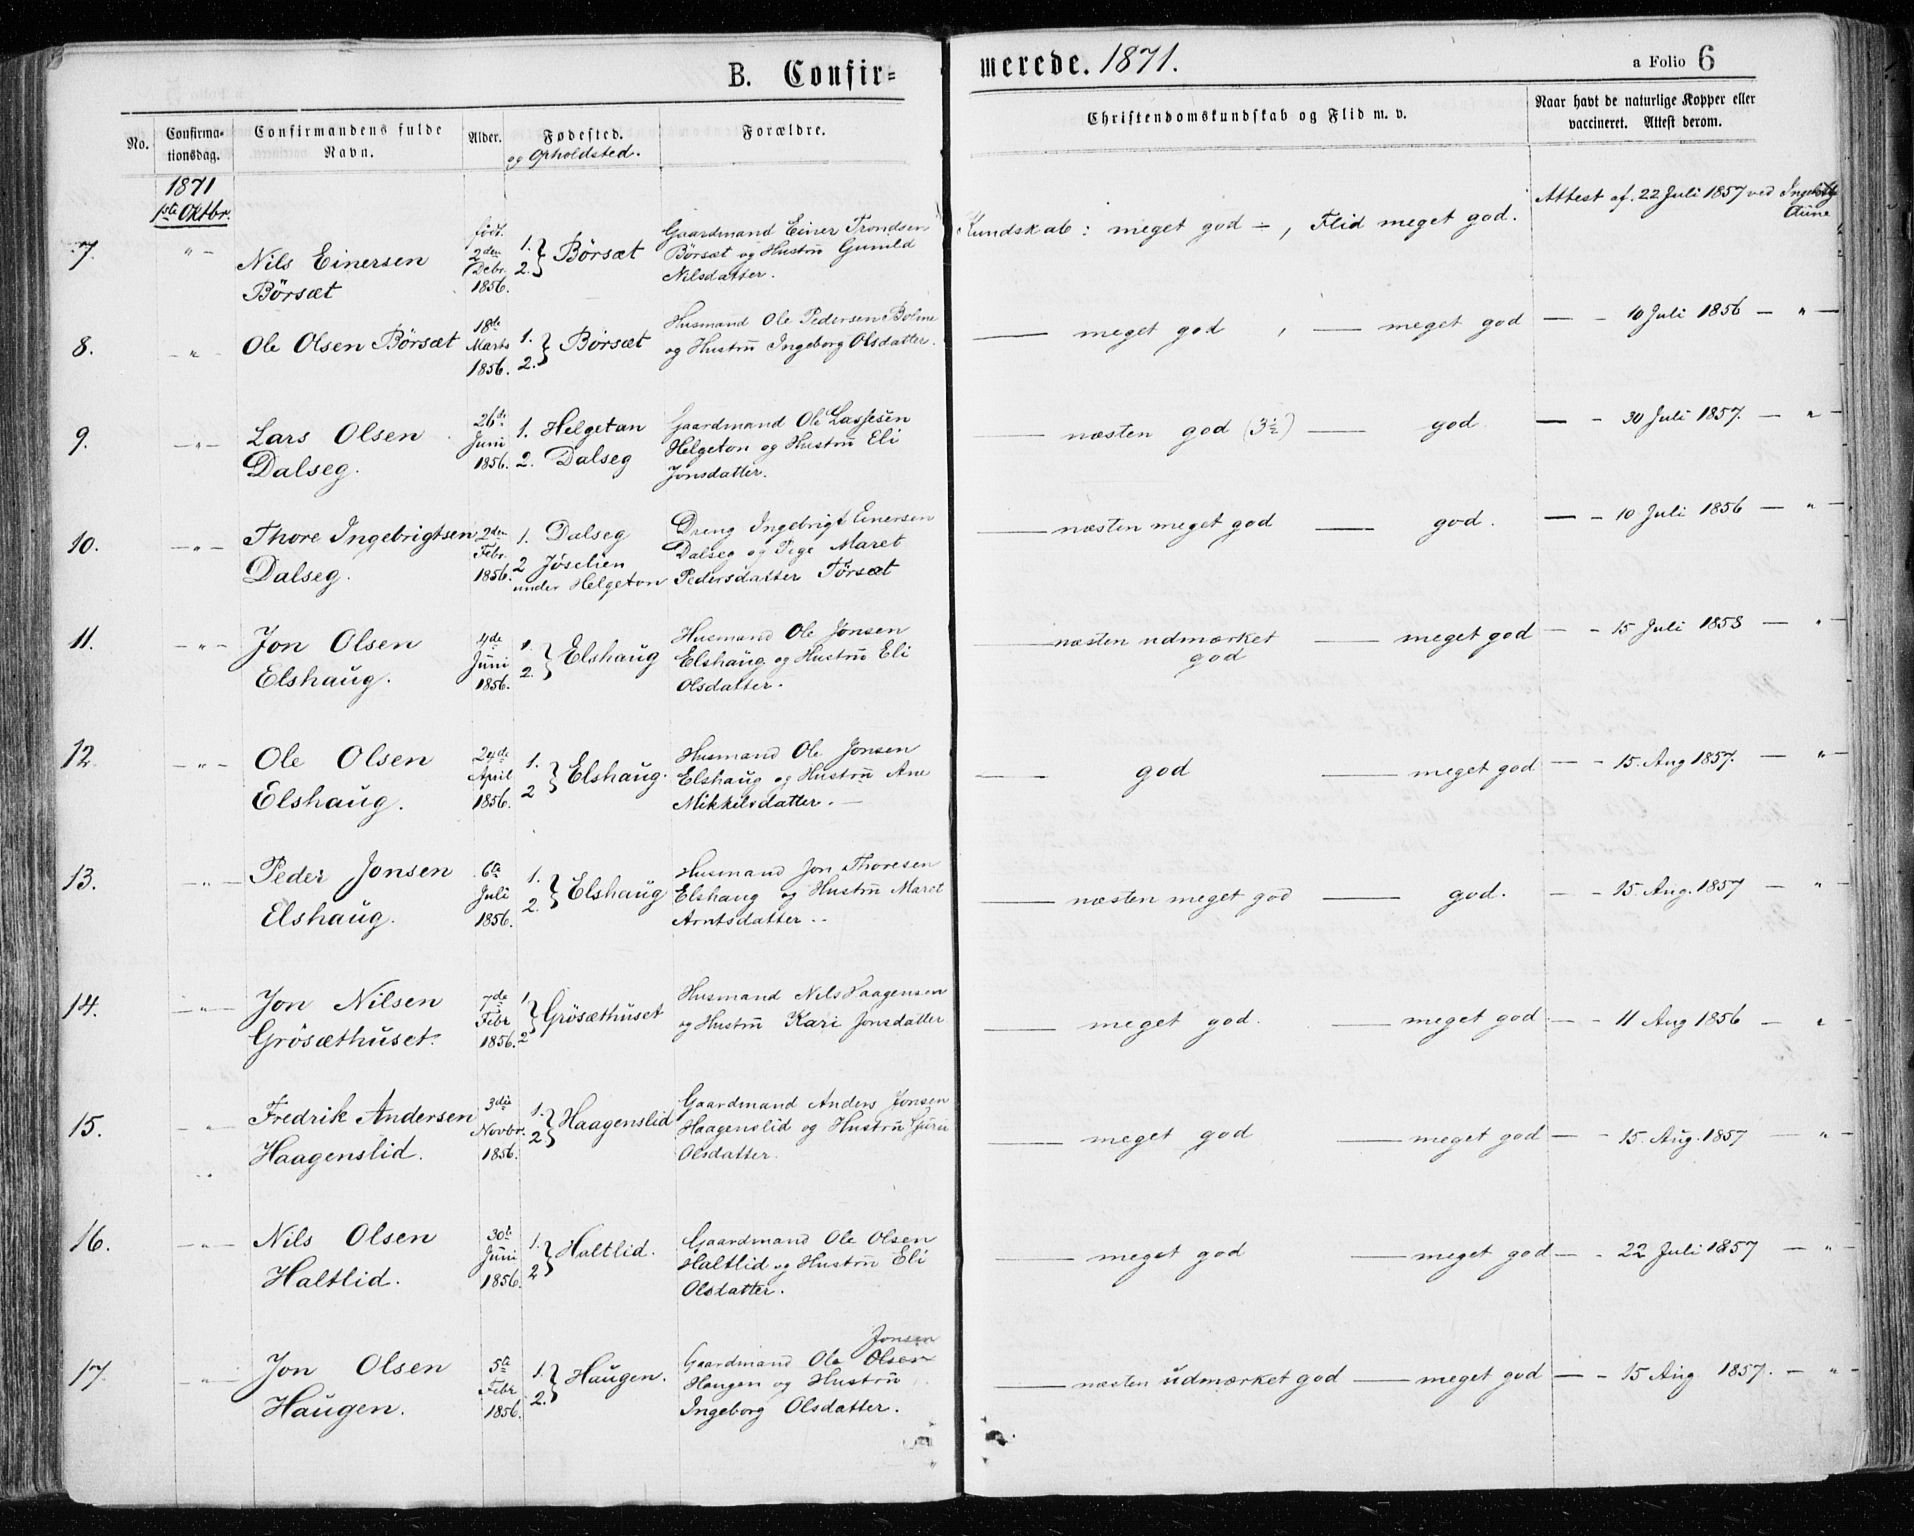 B. Confirmerede. 1871.
a Folio 6
No.
Confirmationsdag.
Confirmandens fulde Navn.
Alder.
Fødested.
og Opholdsted.
Forældre.
Christendomskundskab og Flid m. v.
Naar havt de naturlige Kopper eller
vaccineret. Attest derom.
1871
1ste Oktbr.
7. " Nils Einersen
Börsæt
født
2den
Debr.
1856.
1.
2. } Börsæt
Gaardmand Einer Trondsen
Börsæt og Hustrü Gunild
Nilsdatter.
Kundskab: meget god ÷, Flid meget god.
Attest af. 22 Juli 1857 ved Ingebrigt
Aune
8. " Ole Olsen Börsæt
18de
Marts
1856.
1.
2. } Börsæt
Husmand Ole Pedersen
og Hustrü Ingeborg Olsdatter.
— meget god, — meget god — - 10 Juli 1856 - " -
9. " Lars Olsen
Dalseg.
26de
Juni
1856.
1. Helgetan
2. Dalseg
Gaardmand Ole Lassesen
Helgeton og Hustru Eli
Jonsdatter.
— næsten god (3½) — god. — - 30 Juli 1857. - "
10. " Thore Ingebrigtsen
Dalseg.
2den
Febr.
1856.
1. Dalseg
2 Jöselien
under Helgeton
Dreng Ingebrigt Einersen
Dalseg og Pige Maret
Pedersdatter Törsæt
— næsten meget god — god. — - 10 Juli 1856 - "
11. " Jon Olsen
Elshaug.
4de
Juni
1856.
1.
2. } Elshaug
Husmand Ole Jonsen
Elshaug og Hustrü Eli
Olsdatter.
— næsten udmærket
god
— meget god — - 15 Juli 1858 - "
12 " Ole Olsen
Elshaug.
24de
April
1856.
1.
2 } Elshaug.
Husmand Ole Jonsen
Elshaug og Hustrü Ane
Mikkelsdatter. —
— god — meget god — - 15. Aug 1857. - "
13. " Peder Jonsen
Elshaug.
6te
Juli
1856.
1.
2. } Elshaug
Husmand Jon Thoresen
Elshaug og Hustrü Maret
Arntsdatter..
— næsten meget god — god. — - 15. Aug. 1857 - "
14. " Jon Nilsen
Grösæthuset.
7de
Febr
1856.
1.
2 } Grösæthuset
Husmand Nils Haagensen
og Hustrü Kari Jonsdatter
— meget god. — meget god — - 11 Aug 1856 - "
15. " Fredrik Andersen
Haagenslid.
3die
Novbr.
1856.
1.
2. } Haagenslid
Gaardmand Anders Jonsen
Haagenslid og Hustrü Gjuru
Olsdatter.
— meget god — meget god — - 15. Aug. 1857 - "
16. " Nils Olsen
Haltlid.
30te
Juni
1856.
1.
2 } Haltlid.
Gaardmand Ole Olsen
Haltlid og Hustru Eli
Olsdatter.
— meget god — meget god — - 22 Juli 1857 - "
17. " Jon Olsen
Haugen.
5te
Febr
1856.
1.
2. } Haugen.
Jonsen
Gaardmand Ole Olsen
Haugen og Hustrü
Ingeborg Olsdatter.
— næsten udmærket god — meget god — - 15 Aug 1857. - "